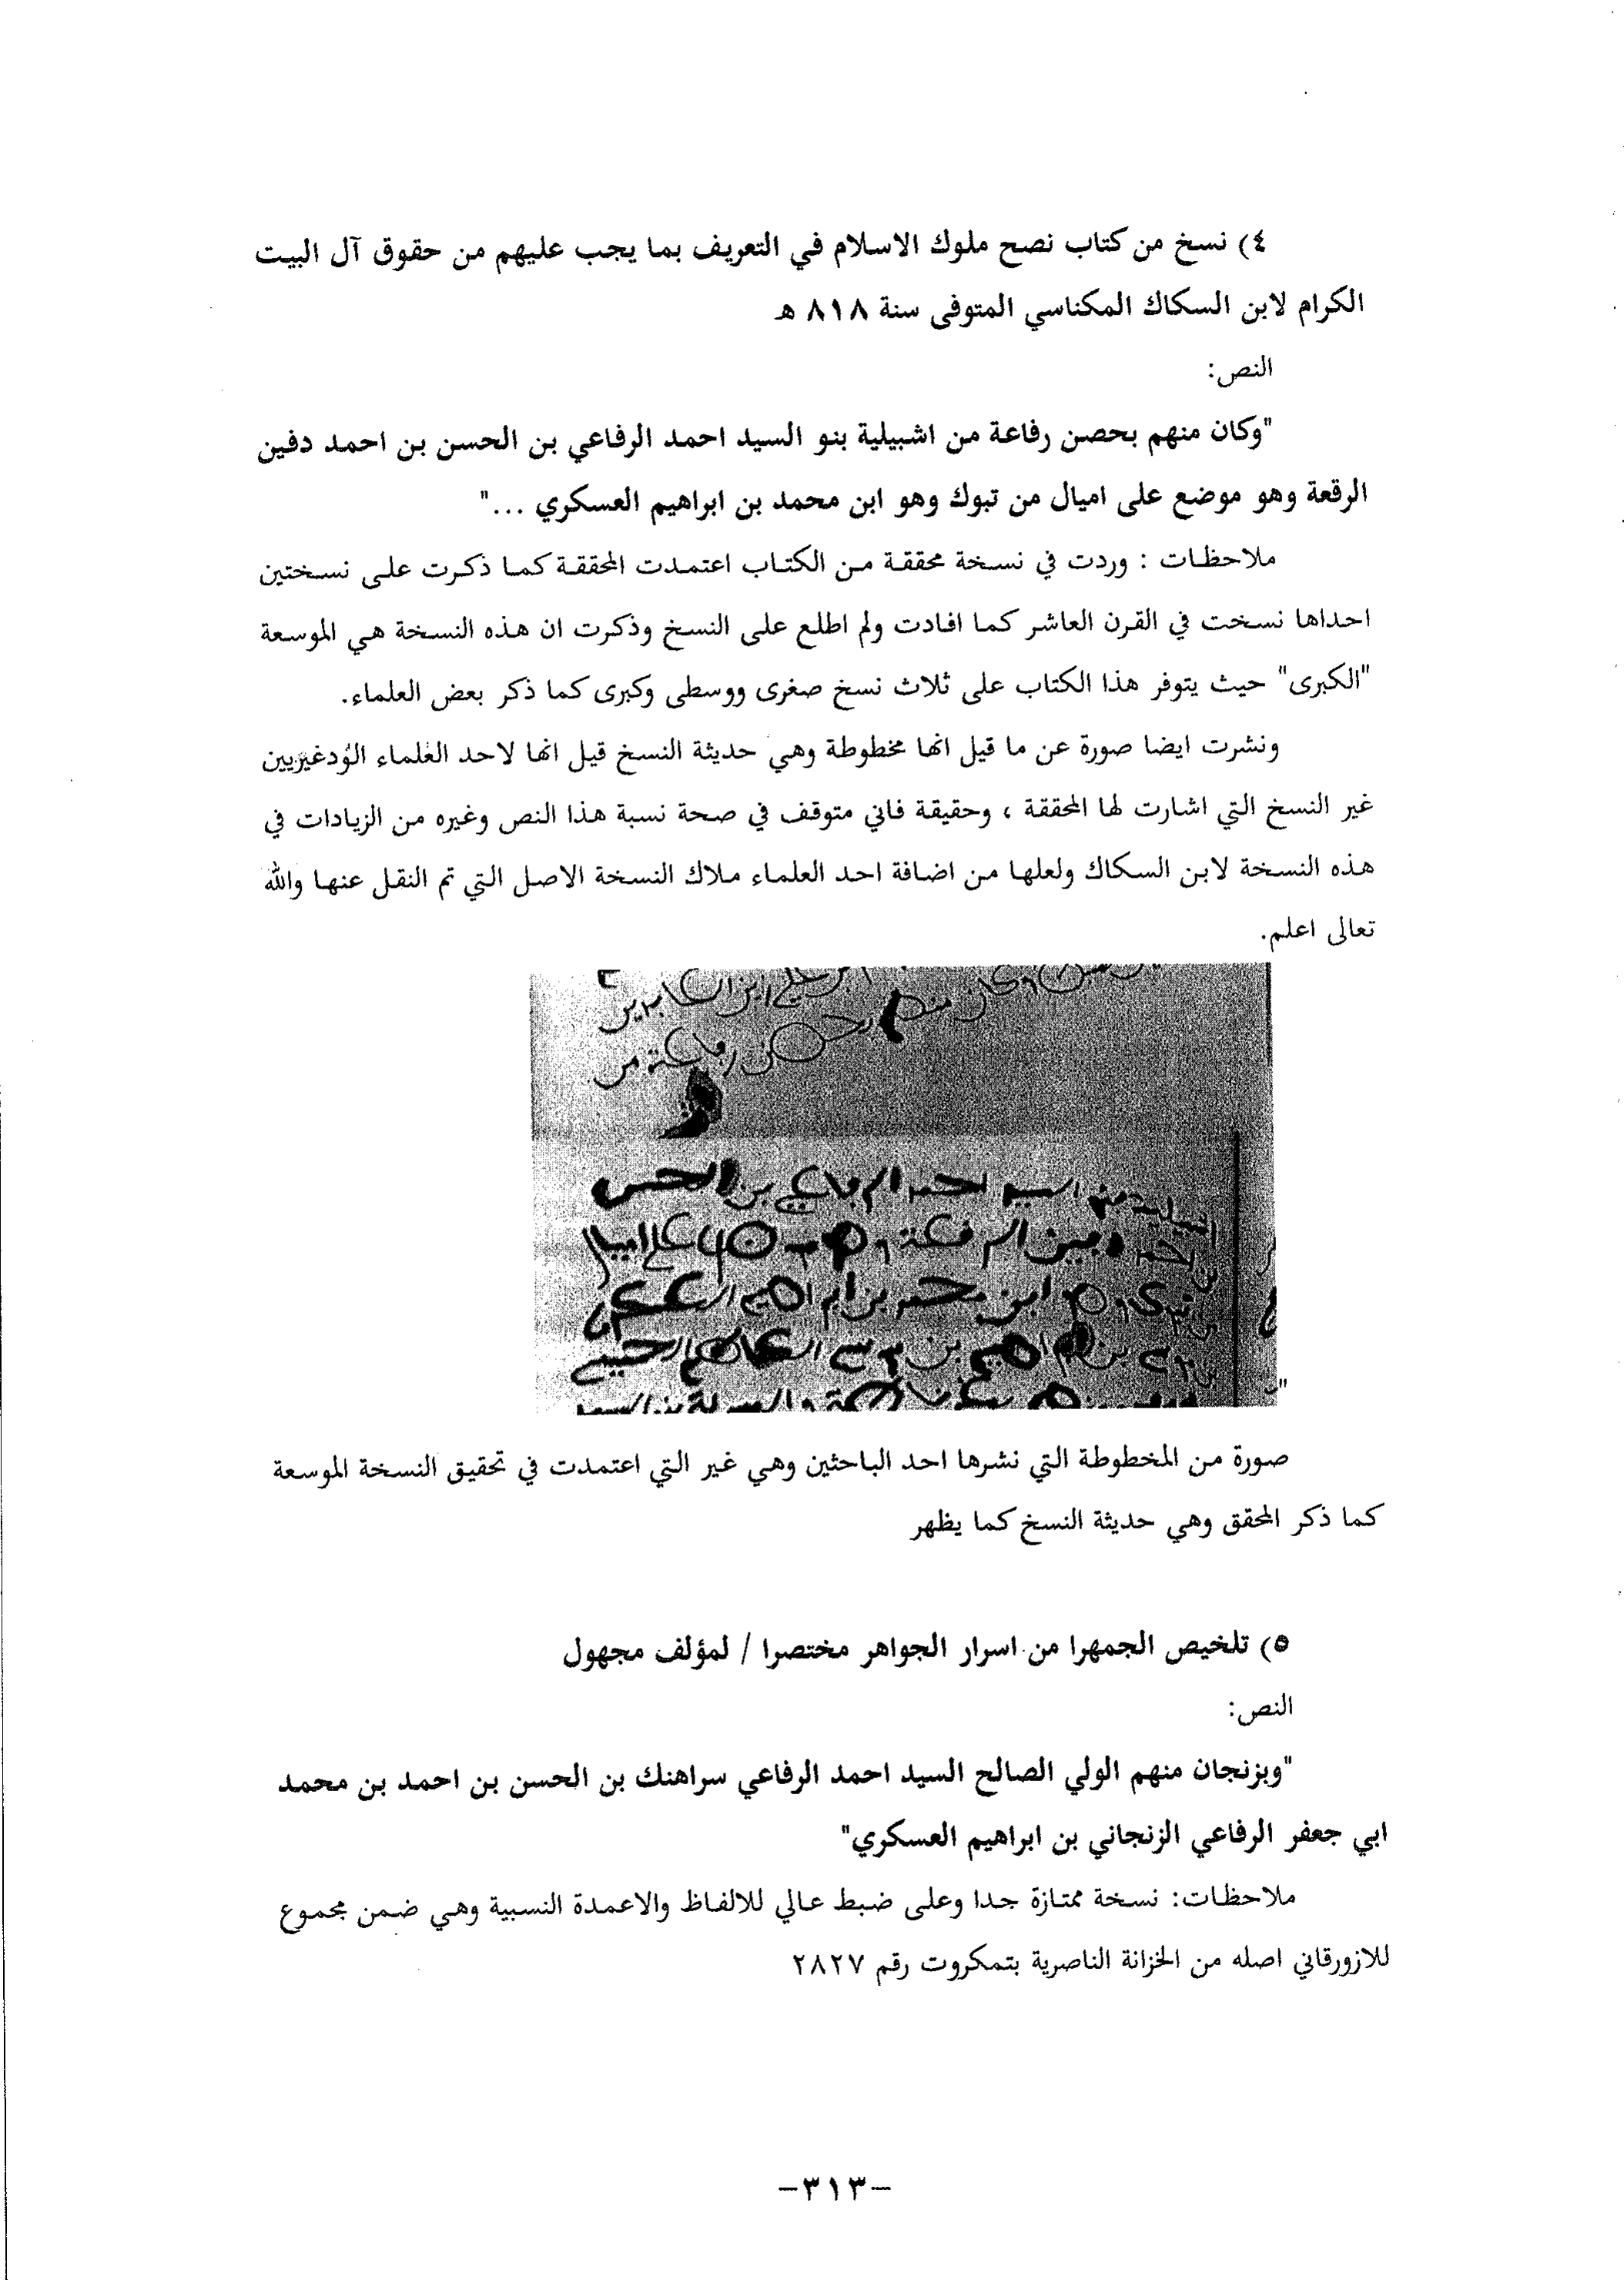 ٤) نسخ من كتاب نصح ملوك الاسلام في التعريف بما يجب عليهم من حقوق آل البيت
الكرام لابن السكاك المكناسي المتوفى سنة ٨١٨ هـ
النص:
"وكان منهم بحصن رفاعة من اشبيلية بنو السيد احمد الرفاعي بن الحسن بن احمد دفين
الرقعة وهو موضع على اميال من تبوك وهو ابن محمد بن ابراهيم العسكري ..."
ملاحظات : وردت في نسخة محققة من الكتاب اعتمدت المحققة كما ذكرت على نسختين
احداها نسخت في القرن العاشر كما افادت ولم اطلع على النسخ وذكرت ان هذه النسخة هي الموسعة
"الكبرى" حيث يتوفر هذا الكتاب على ثلاث نسخ صغرى ووسطى وكبرى كما ذكر بعض العلماء.
ونشرت ايضا صورة عن ما قيل انها مخطوطة وهي حديثة النسخ قيل انها لاحد العلماء الودغيريين
غير النسخ التي اشارت لها المحققة ، وحقيقة فاني متوقف في صحة نسبة هذا النص وغيره من الزيادات في
هذه النسخة لابن السكاك ولعلها من اضافة احد العلماء ملاك النسخة الاصل التي تم النقل عنها والله
تعالى اعلم.
وكان منهم بحصن رفاعة من
السيد احمد الرفاعي بن الحسن
احمد دفين الرقعة وهو موضع على اميال
وهو ابن محمد بن ابراهيم العسكري
بن ابراهيم بن موسى الكاظم
صورة من المخطوطة التي نشرها احد الباحثين وهي غير التي اعتمدت في تحقيق النسخة الموسعة
كما ذكر المحقق وهي حديثة النسخ كما يظهر
٥) تلخيص الجمهرا من اسرار الجواهر مختصرا / لمؤلف مجهول
النص:
"وبزنجان منهم الولي الصالح السيد احمد الرفاعي سراهنك بن الحسن بن احمد بن محمد
ابي جعفر الرفاعي الزنجاني بن ابراهيم العسكري"
ملاحظات: نسخة ممتازة جدا وعلى ضبط عالي للالفاظ والاعمدة النسبية وهي ضمن مجموع
للازورقاني اصله من الخزانة الناصرية بتمكروت رقم ٢٨٢٧
-٣١٣-